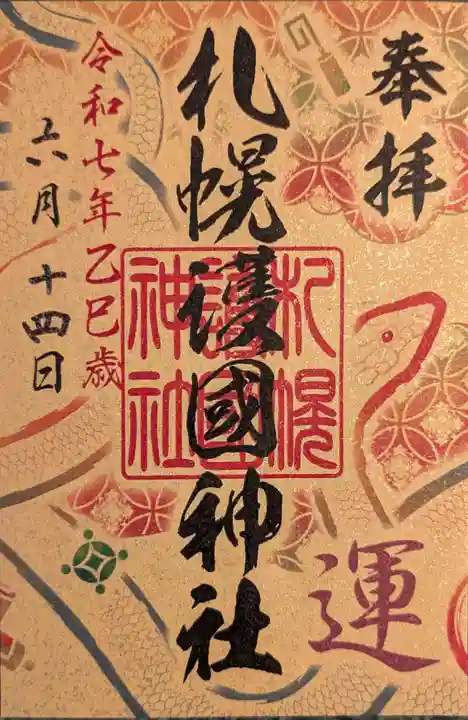 奉拝
札幌護國神社
札幌
護國
神社
令和七年乙巳歳
六月十四日
運